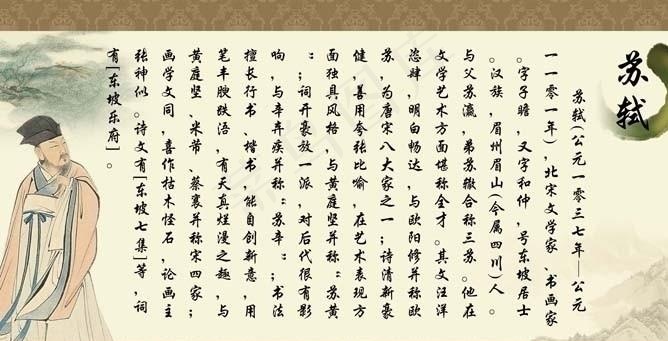 苏轼
苏轼(公元一零三七年—公元
一一零一年),北宋文学家、书画家
。字子瞻,又字和仲,号东坡居士
。汉族,眉州眉山(今属四川)人。
与父苏瀛,弟苏辙合称三苏。他在
文学艺术方面堪称全才。其文汪洋
恣肆,明白畅达,与欧阳修并称欧
苏,为唐宋八大家之一;诗清新豪
健,善用夸张比喻,在艺术表现方
面独具风格,与黄庭坚并称"苏黄
";词开豪放一派,对后代很有影
响,与辛弃疾并称"苏辛";书法
擅长行书、楷书,能自创新意,用
笔丰腴跌宕,有天真烂漫之趣,与
黄庭坚、米芾、蔡襄并称宋四家;
画学文同,喜作枯木怪石,论画主
张神似。诗文有[东坡七集]等,词
有[东坡乐府]。